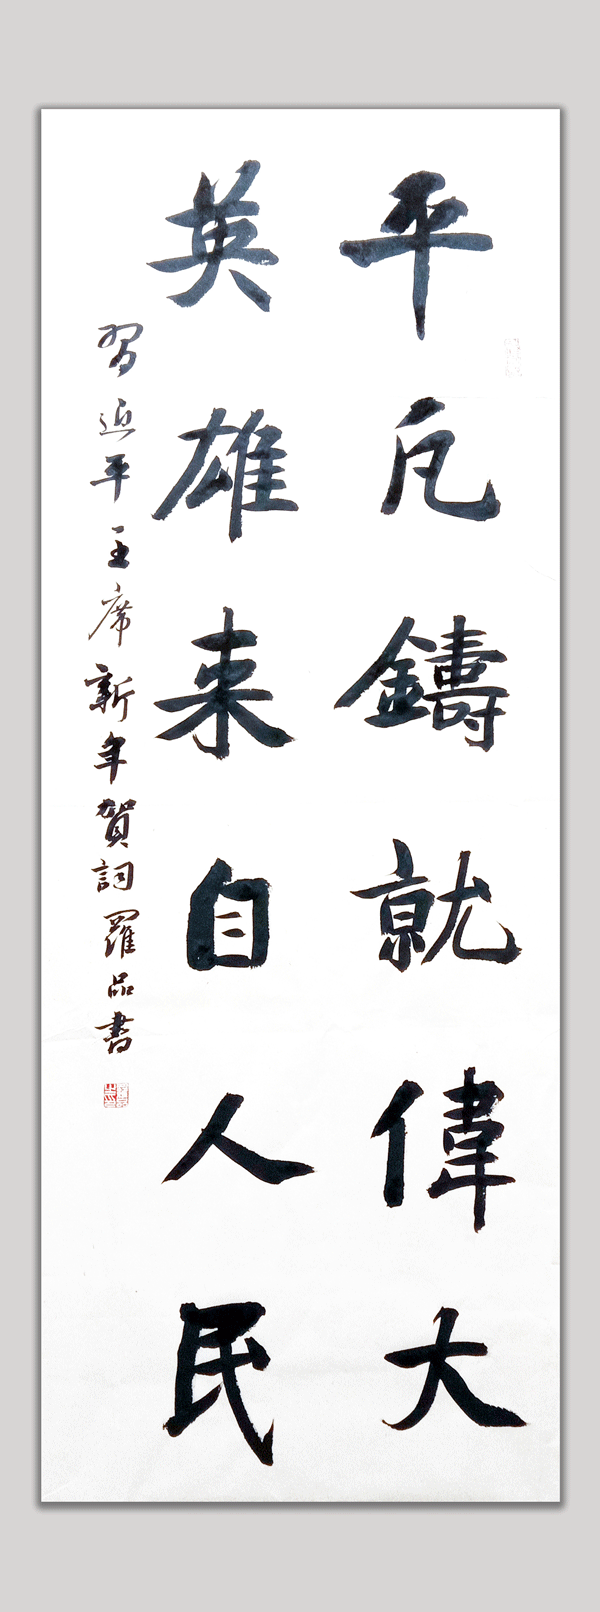 平凡鑄就偉大
英雄来自人民
習近平主席新年賀詞羅品書